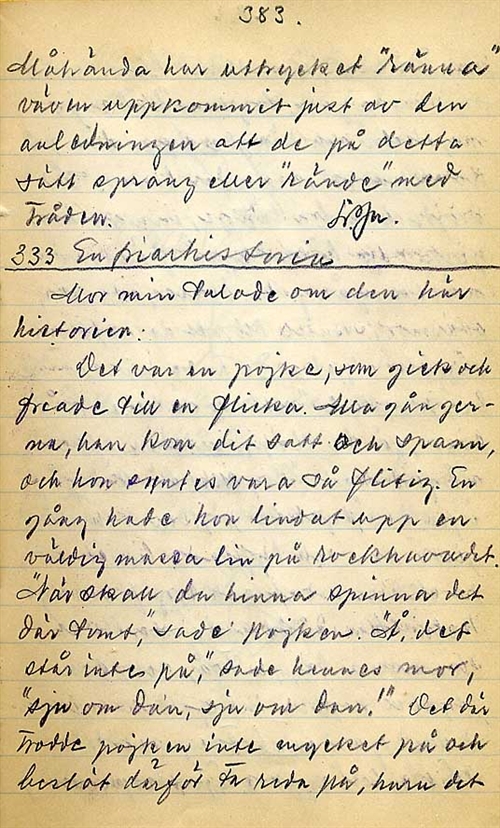 383.
Måhända har uttrycket "ränna"
väven uppkommit just av den
anledningen att de på detta
sätt sprang eller "rände" med
tråden.
333 En friarhistoria
Mor min talade om den här
historien:
Det var en pojke, som gick och
friade till en flicka. Alla gånger-
na, han kom dit satt och spann,
och hon syntes vara så flitig. En
gång hade hon lindat upp en
väldig massa lin på rockhuvudet.
"När skall du hinna spinna det
där tomt," sade pojken. "Å, det
står inte på," sade hennes mor,
"sju om dan, sju om dan!" Det där
trodde pojken inte mycket på och
beslöt därför ta reda på, huru det